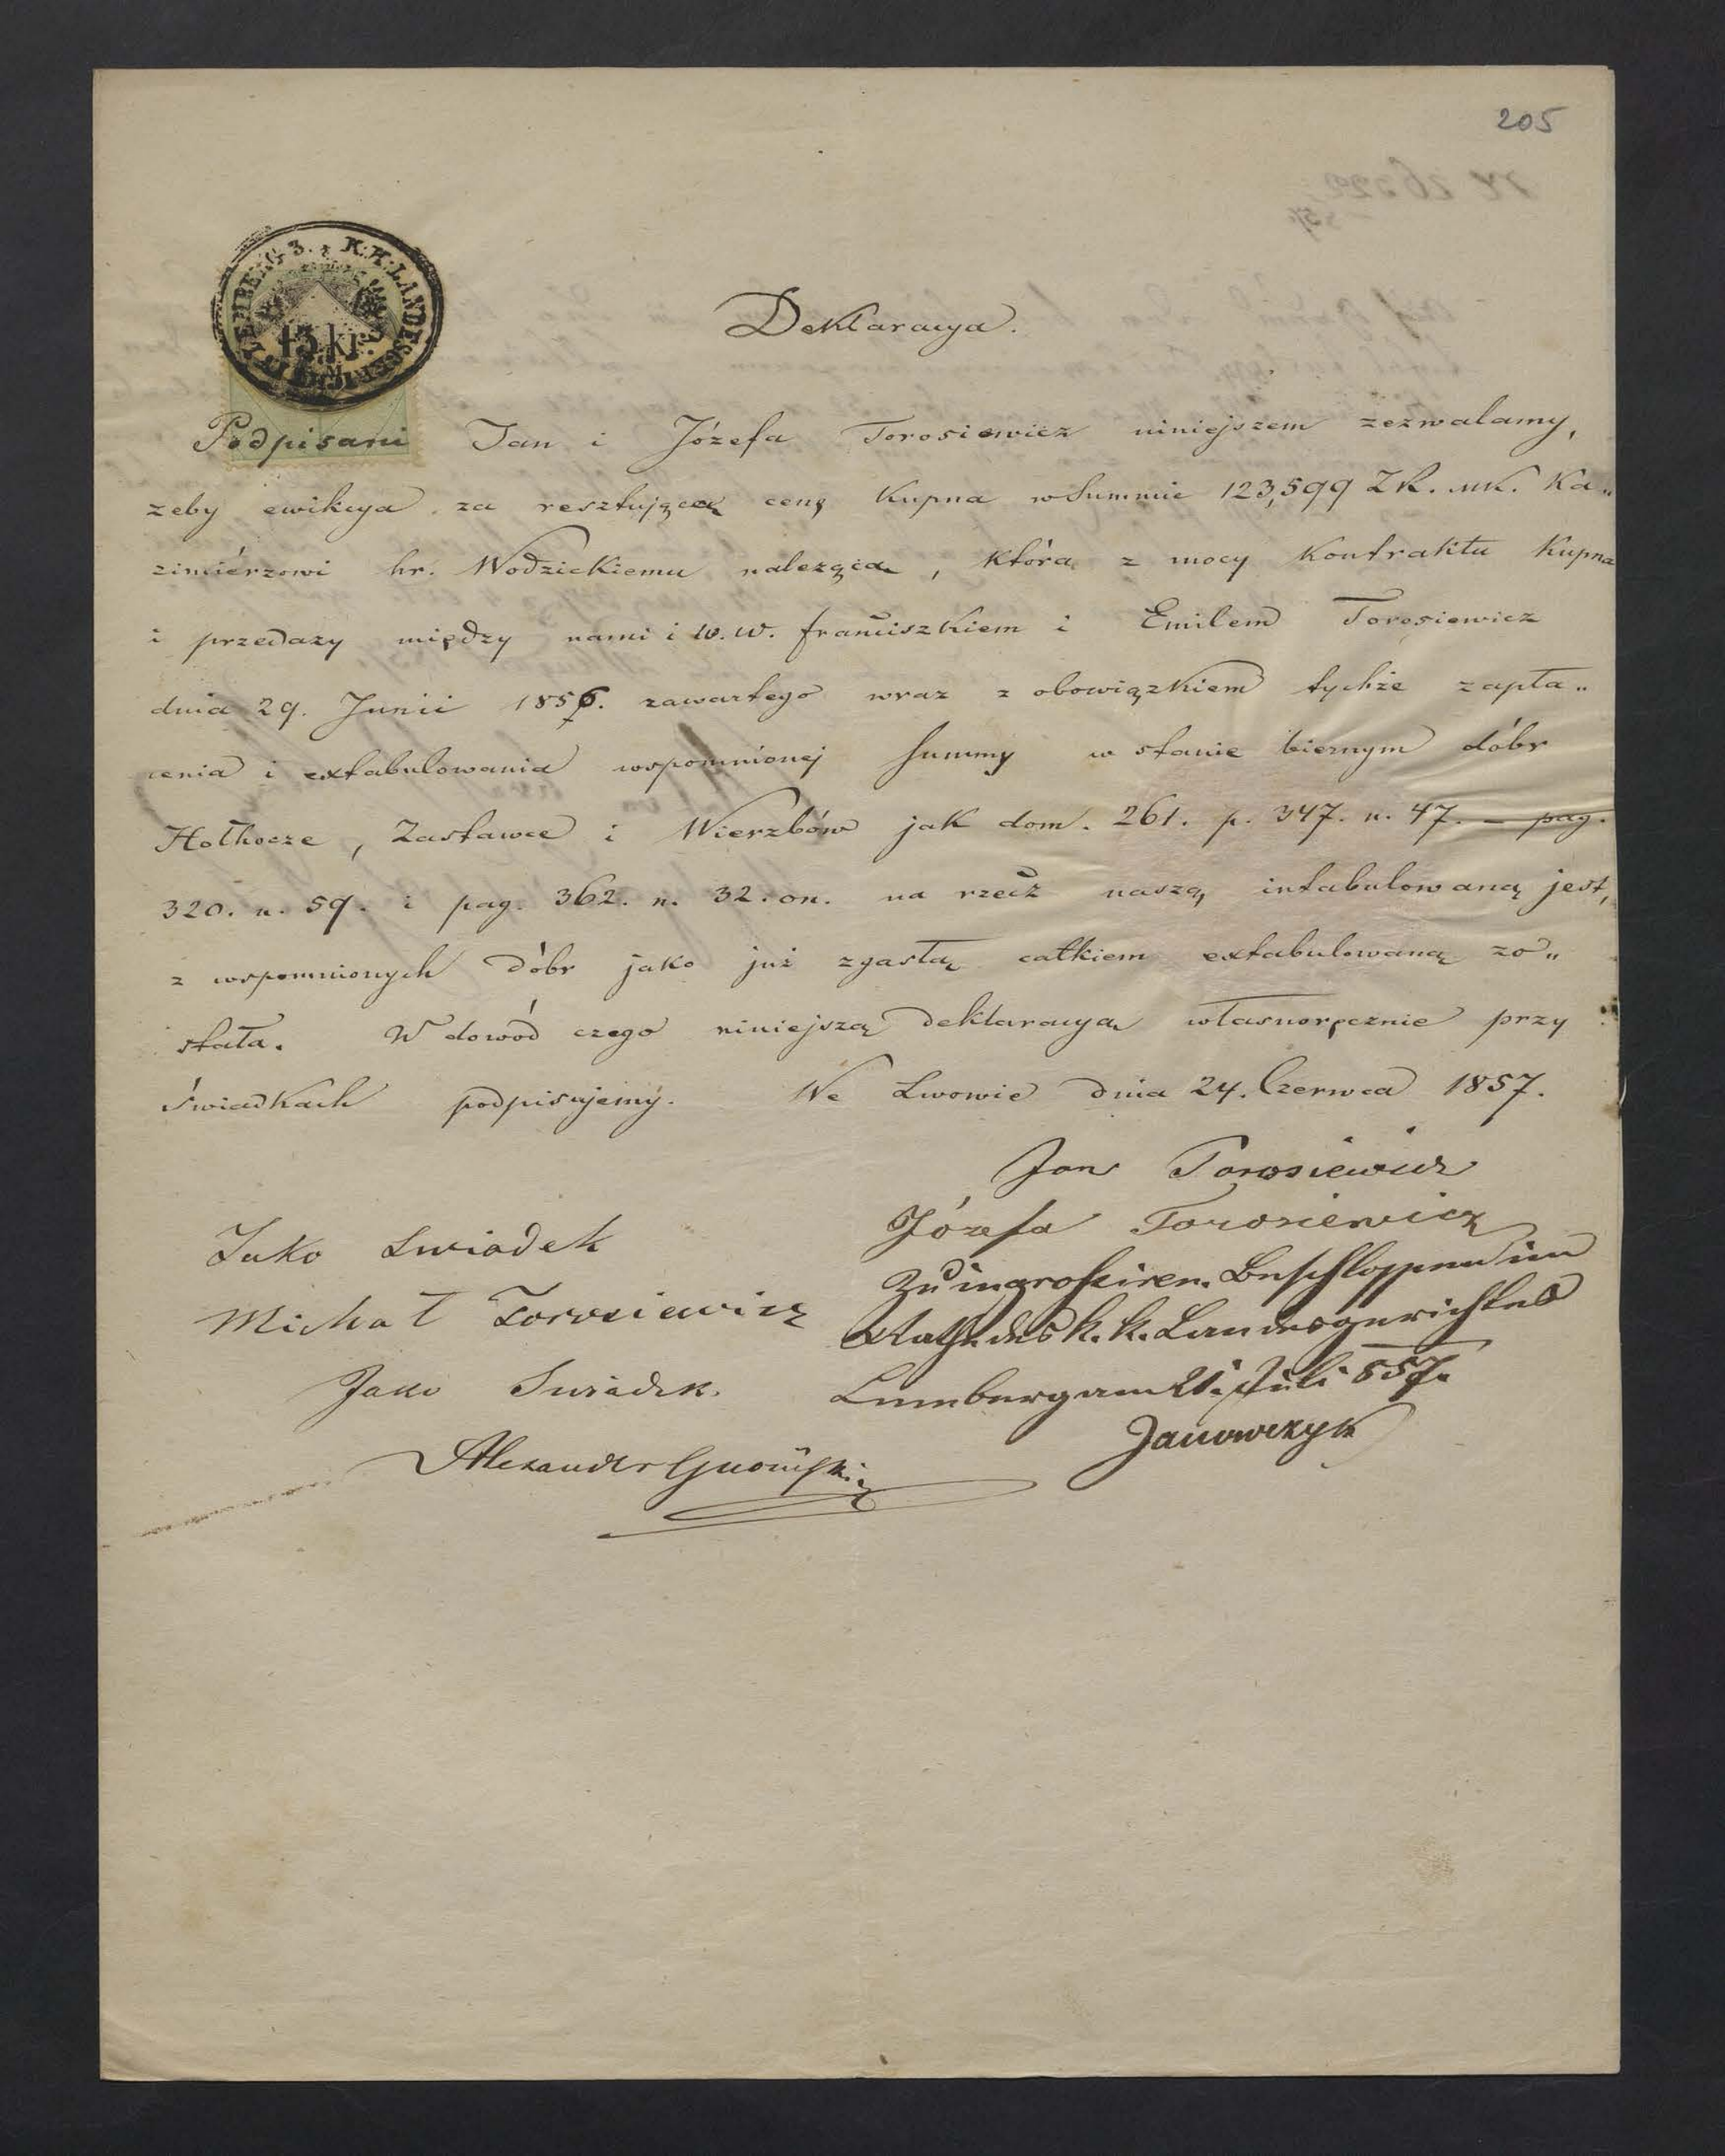 205
K. K. LANDESGERICHT LEMBERG 3.
15 kr.
Deklaracya.
Podpisani Jan i Józefa Torosiewicz niniejszem zezwalamy,
zeby ewikcya za resztującą cenę Kupna w Summie 123,599 ZR. mk. Ka„
zimiérzowi hr. Wodzickiemu nalezącą, która z mocy Kontraktu Kupna
i przedazy między nami i W. W. franciszkiem i Emilem Torosiewicz
dnia 29. Junii 1856. zawartego wraz z obowiązkiem tychże zapła„
cenia i extabulowania wspomnionej Summy w stanie biernym dóbr
Hołhocze, Zastawce i Wierzbów jak dom. 261. p. 347. n. 47. — pag.
320. n. 59. i pag. 362. n. 32. on. na rzecz naszą intabulowaną jest,
z wspomnionych dóbr jako już zgasłą całkiem extabulowaną zo„
stała. W dowód czego niniejszą deklaracyą własnoręcznie przy
świadkach podpisujemy. We Lwowie dnia 24. Czerwca 1857.
Jan Torosiewicz
Józefa Torosiewicz
Jako Swiadek
Michał Torosiewicz
Jako Swiadek.
Alexander
Zu ingrossiren. Beschlossen im
Rathe des k. k. Landesgerichtes
Lemberg am 21. Juli 857.
Janowczyk